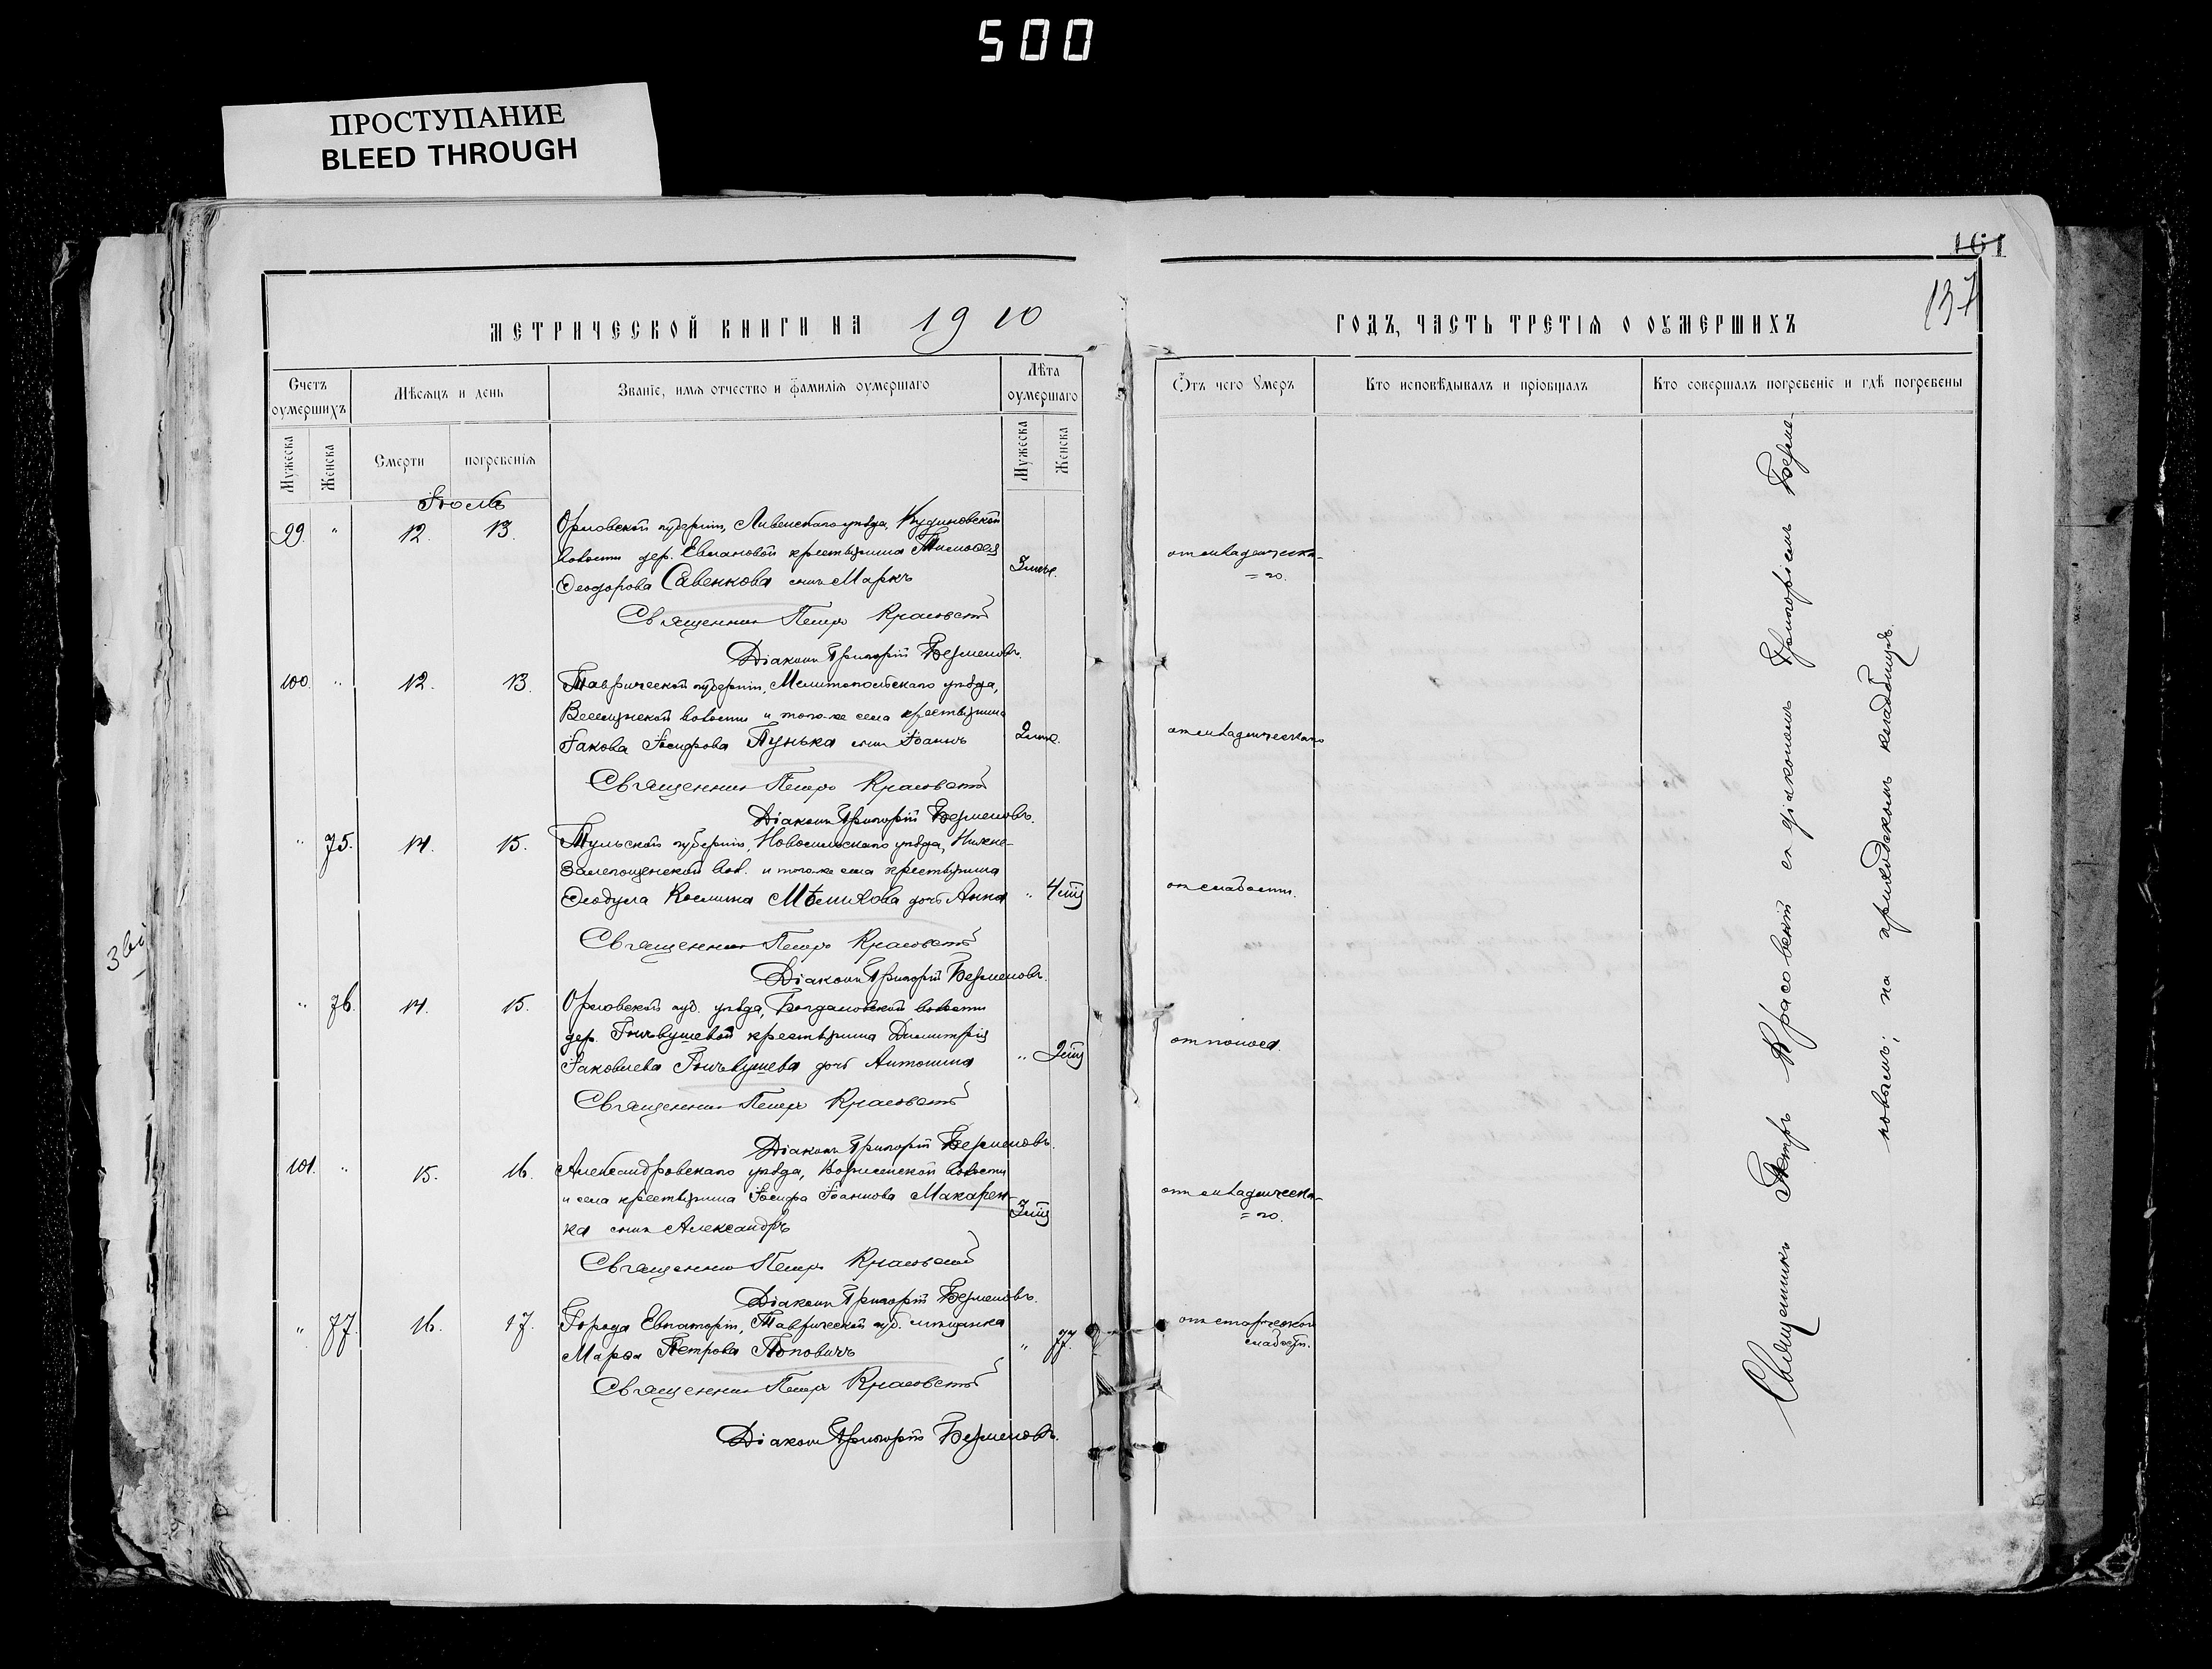 500
ПРОСТУПАНИЕ
BLEED THROUGH
161
137
МЕТРИЧЕСКОЙ КНИГИ НА 1910
ГОДЪ, ЧАСТЬ ТРЕТІЯ О ОУМЕРШИХЪ
Счетъ оумершихъ
Мѣсяцъ и день
Званіе, имя отчество и фамилія оумершаго
Лѣта оумершаго
Ѿтъ чего Умеръ
Кто исповѣдывалъ и пріобщалъ
Кто совершалъ погребеніе и гдѣ погребены
Мужеска
Женска
Смерти
погребенія
Мужеска
Женска
Іюль
99. " 12. 13. Орловской губерніи, Ливенскаго уѣзда, Кудиновской
волости дер. Евлановой крестьянина Тимофея
Ѳеодорова Савенкова сынъ Маркъ
отъ младенческа-
=го.
Священникъ Петръ Красовскій
Діаконъ Григорій Безменовъ.
100. " 12. 13. Таврической губерніи, Мелитопольскаго уѣзда,
волости и того-же села крестьянина
Іакова Іосифова Пунька сынъ Іоаннъ
отъ младенческаго
Священникъ Петръ Красовскій
Діаконъ Григорій Безменовъ.
" 75. 14. 15. Тульской губерніи, Новосильскаго уѣзда, Нижне-
Залегощенской вол. и того-же села крестьянина
Ѳеодула Космина дочь Анна " 4
отъ слабости.
Священникъ Петръ Красовскій
Діаконъ Григорій Безменовъ.
" 76. 14. 15. Орловской губ. уѣзда, Богдановской волости
дер. крестьянина Димитрія
Іаковлева дочь Антонина "
отъ поноса.
Священникъ Петръ Красовскій
Діаконъ Григорій Безменовъ.
101. " 15. 16. Александровскаго уѣзда, волости
и села крестьянина Іосифа Іоаннова Макарен-
ка сынъ Александръ
отъ младенческа-
=го.
Священникъ Петръ Красовскій
Діаконъ Григорій Безменовъ.
" 77. 16. 17. Города Евпаторіи, Таврической губ. мѣщанка
Марѳа Петрова Поповичъ " 77.
отъ старческой
слабости.
Священникъ Петръ Красовскій
Діаконъ Григорій Безменовъ.
Священникъ Петръ Красовскій съ діакономъ Григоріемъ Безме-
новымъ; на приходскомъ кладбищѣ.